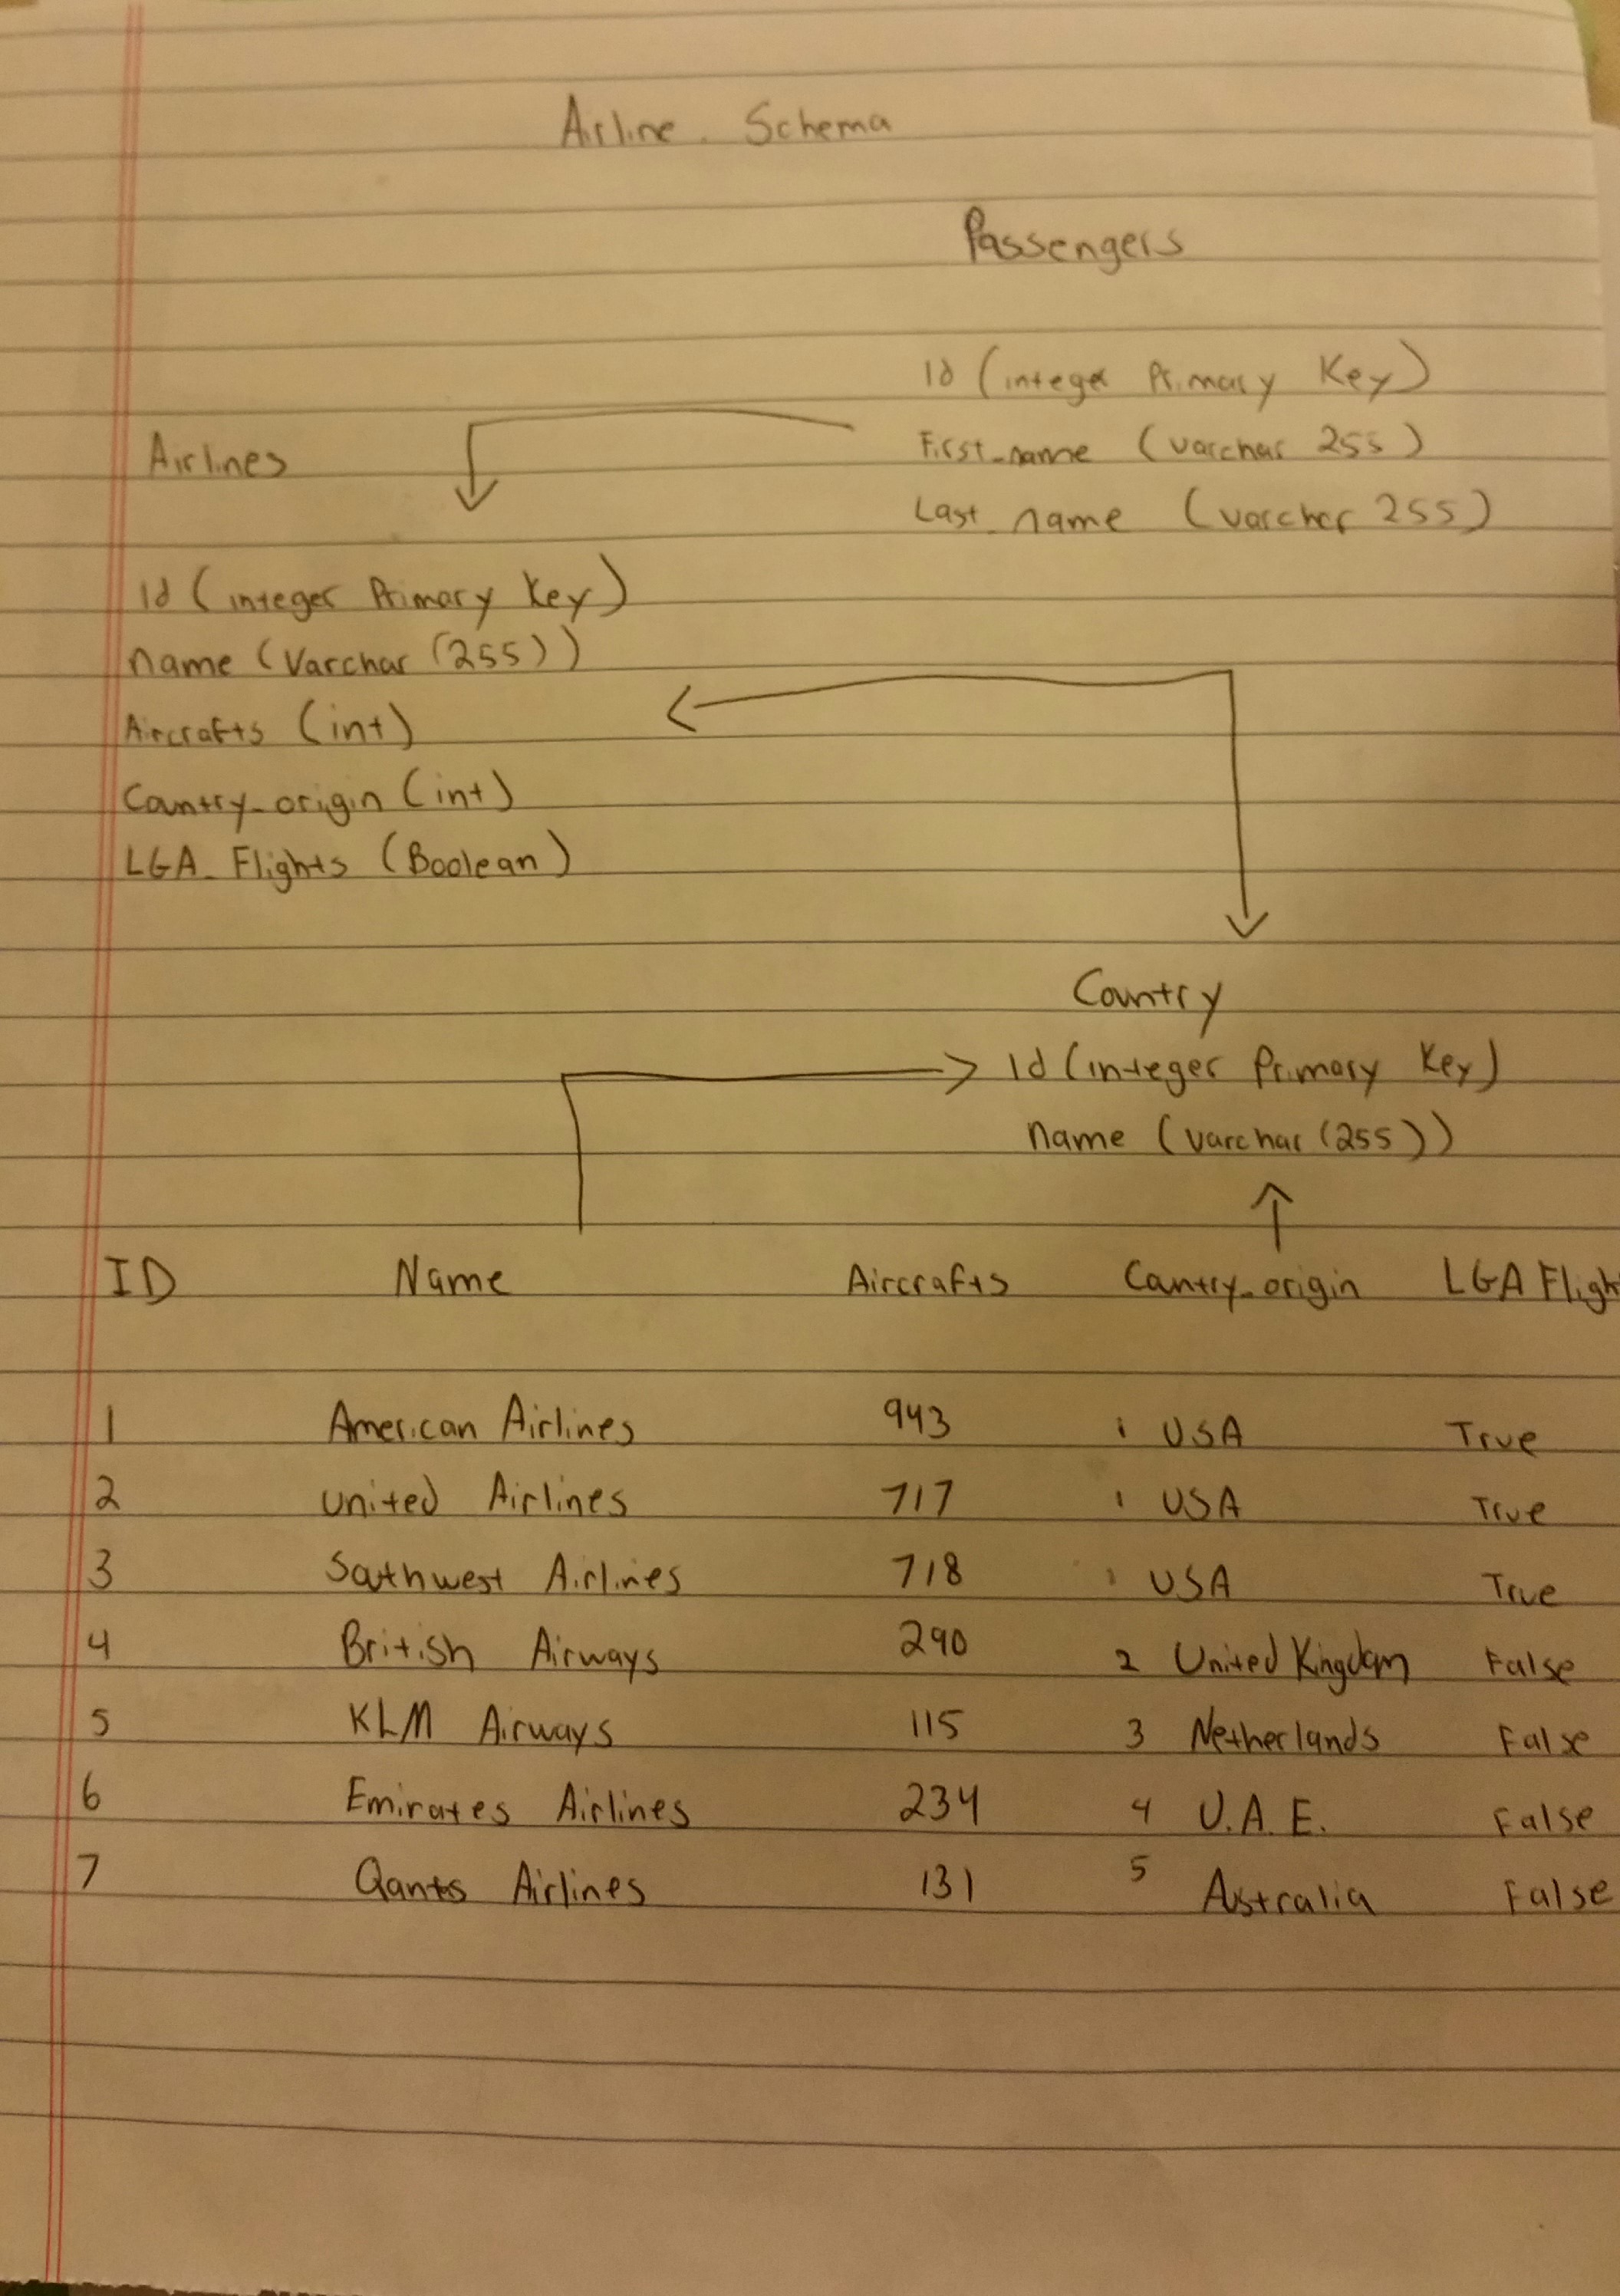 Airline Schema
Passengers
Id (integer Primary Key)
First_name (varchar 255)
Last_name (varchar 255)
Airlines
Id (integer Primary Key)
name (Varchar (255))
Aircrafts (int)
Country_origin (int)
LGA_Flights (Boolean)
Country
Id (integer Primary Key)
name (varchar (255))
ID Name Aircrafts Country_origin LGA Fligh
1 American Airlines 943 1 USA True
2 United Airlines 717 1 USA True
3 Southwest Airlines 718 1 USA True
4 British Airways 290 2 United Kingdom False
5 KLM Airways 115 3 Netherlands False
6 Emirates Airlines 234 4 U.A.E. False
7 Qants Airlines 131 5 Australia False